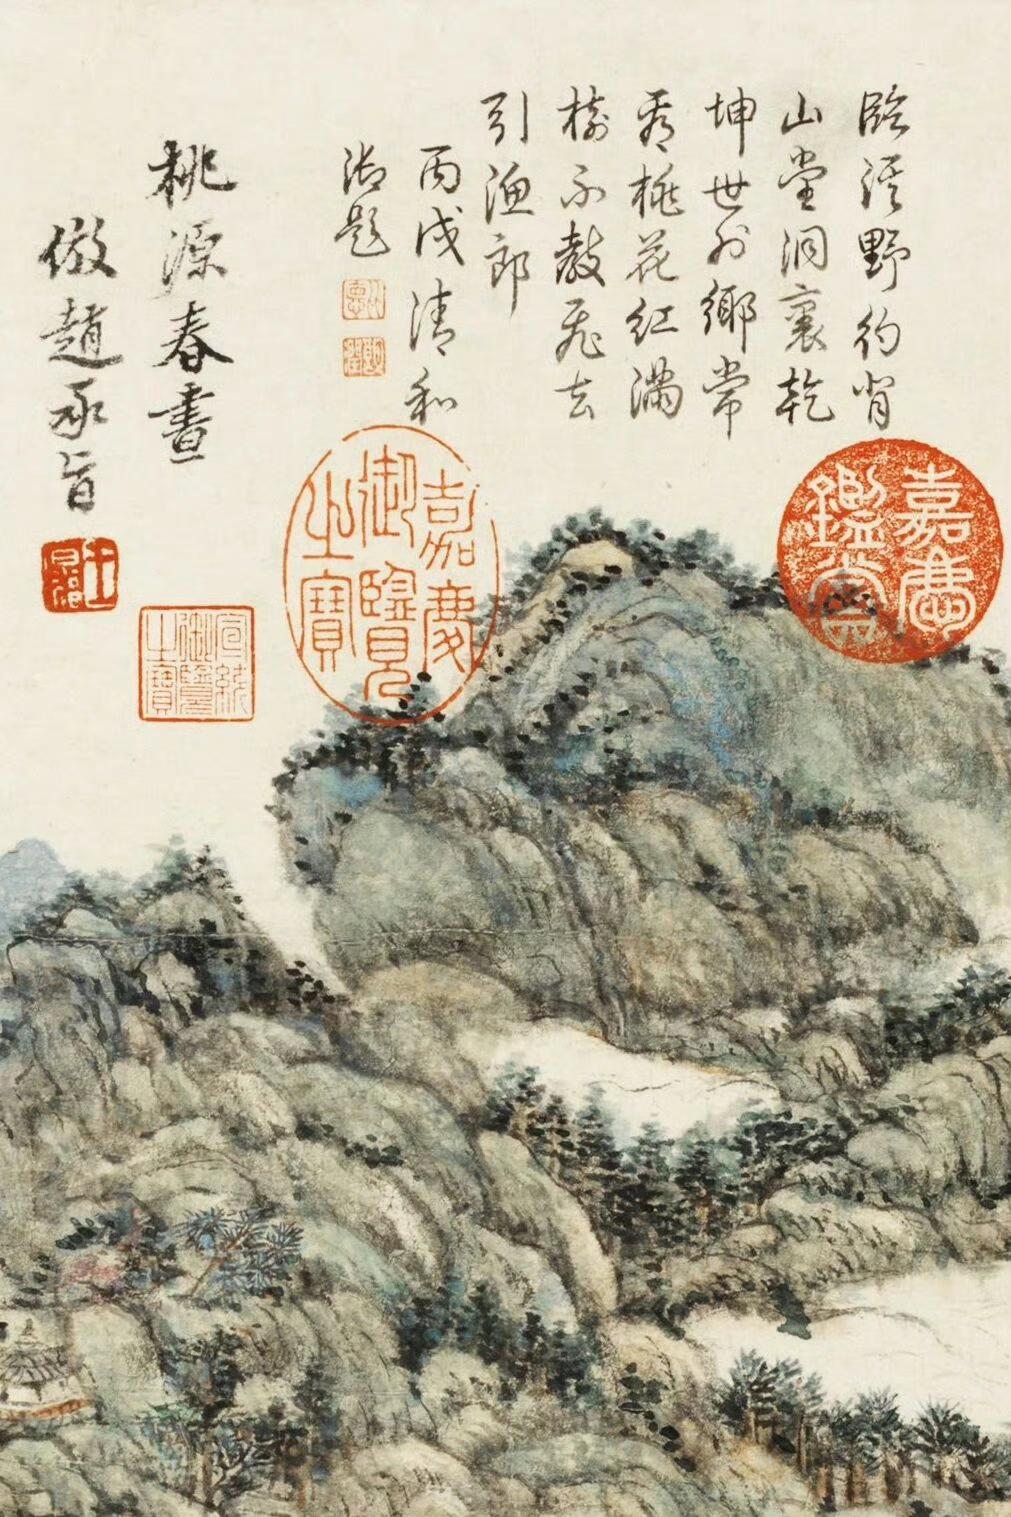 臨溪野彴背
山堂洞裏乾
坤世外鄉常
看桃花紅滿
樹不教飛去
引漁郎
丙戌清和
御題
嘉慶鑑賞
嘉慶
御覽
之寶
桃源春晝
倣趙承旨
宣統
御覽
之寶